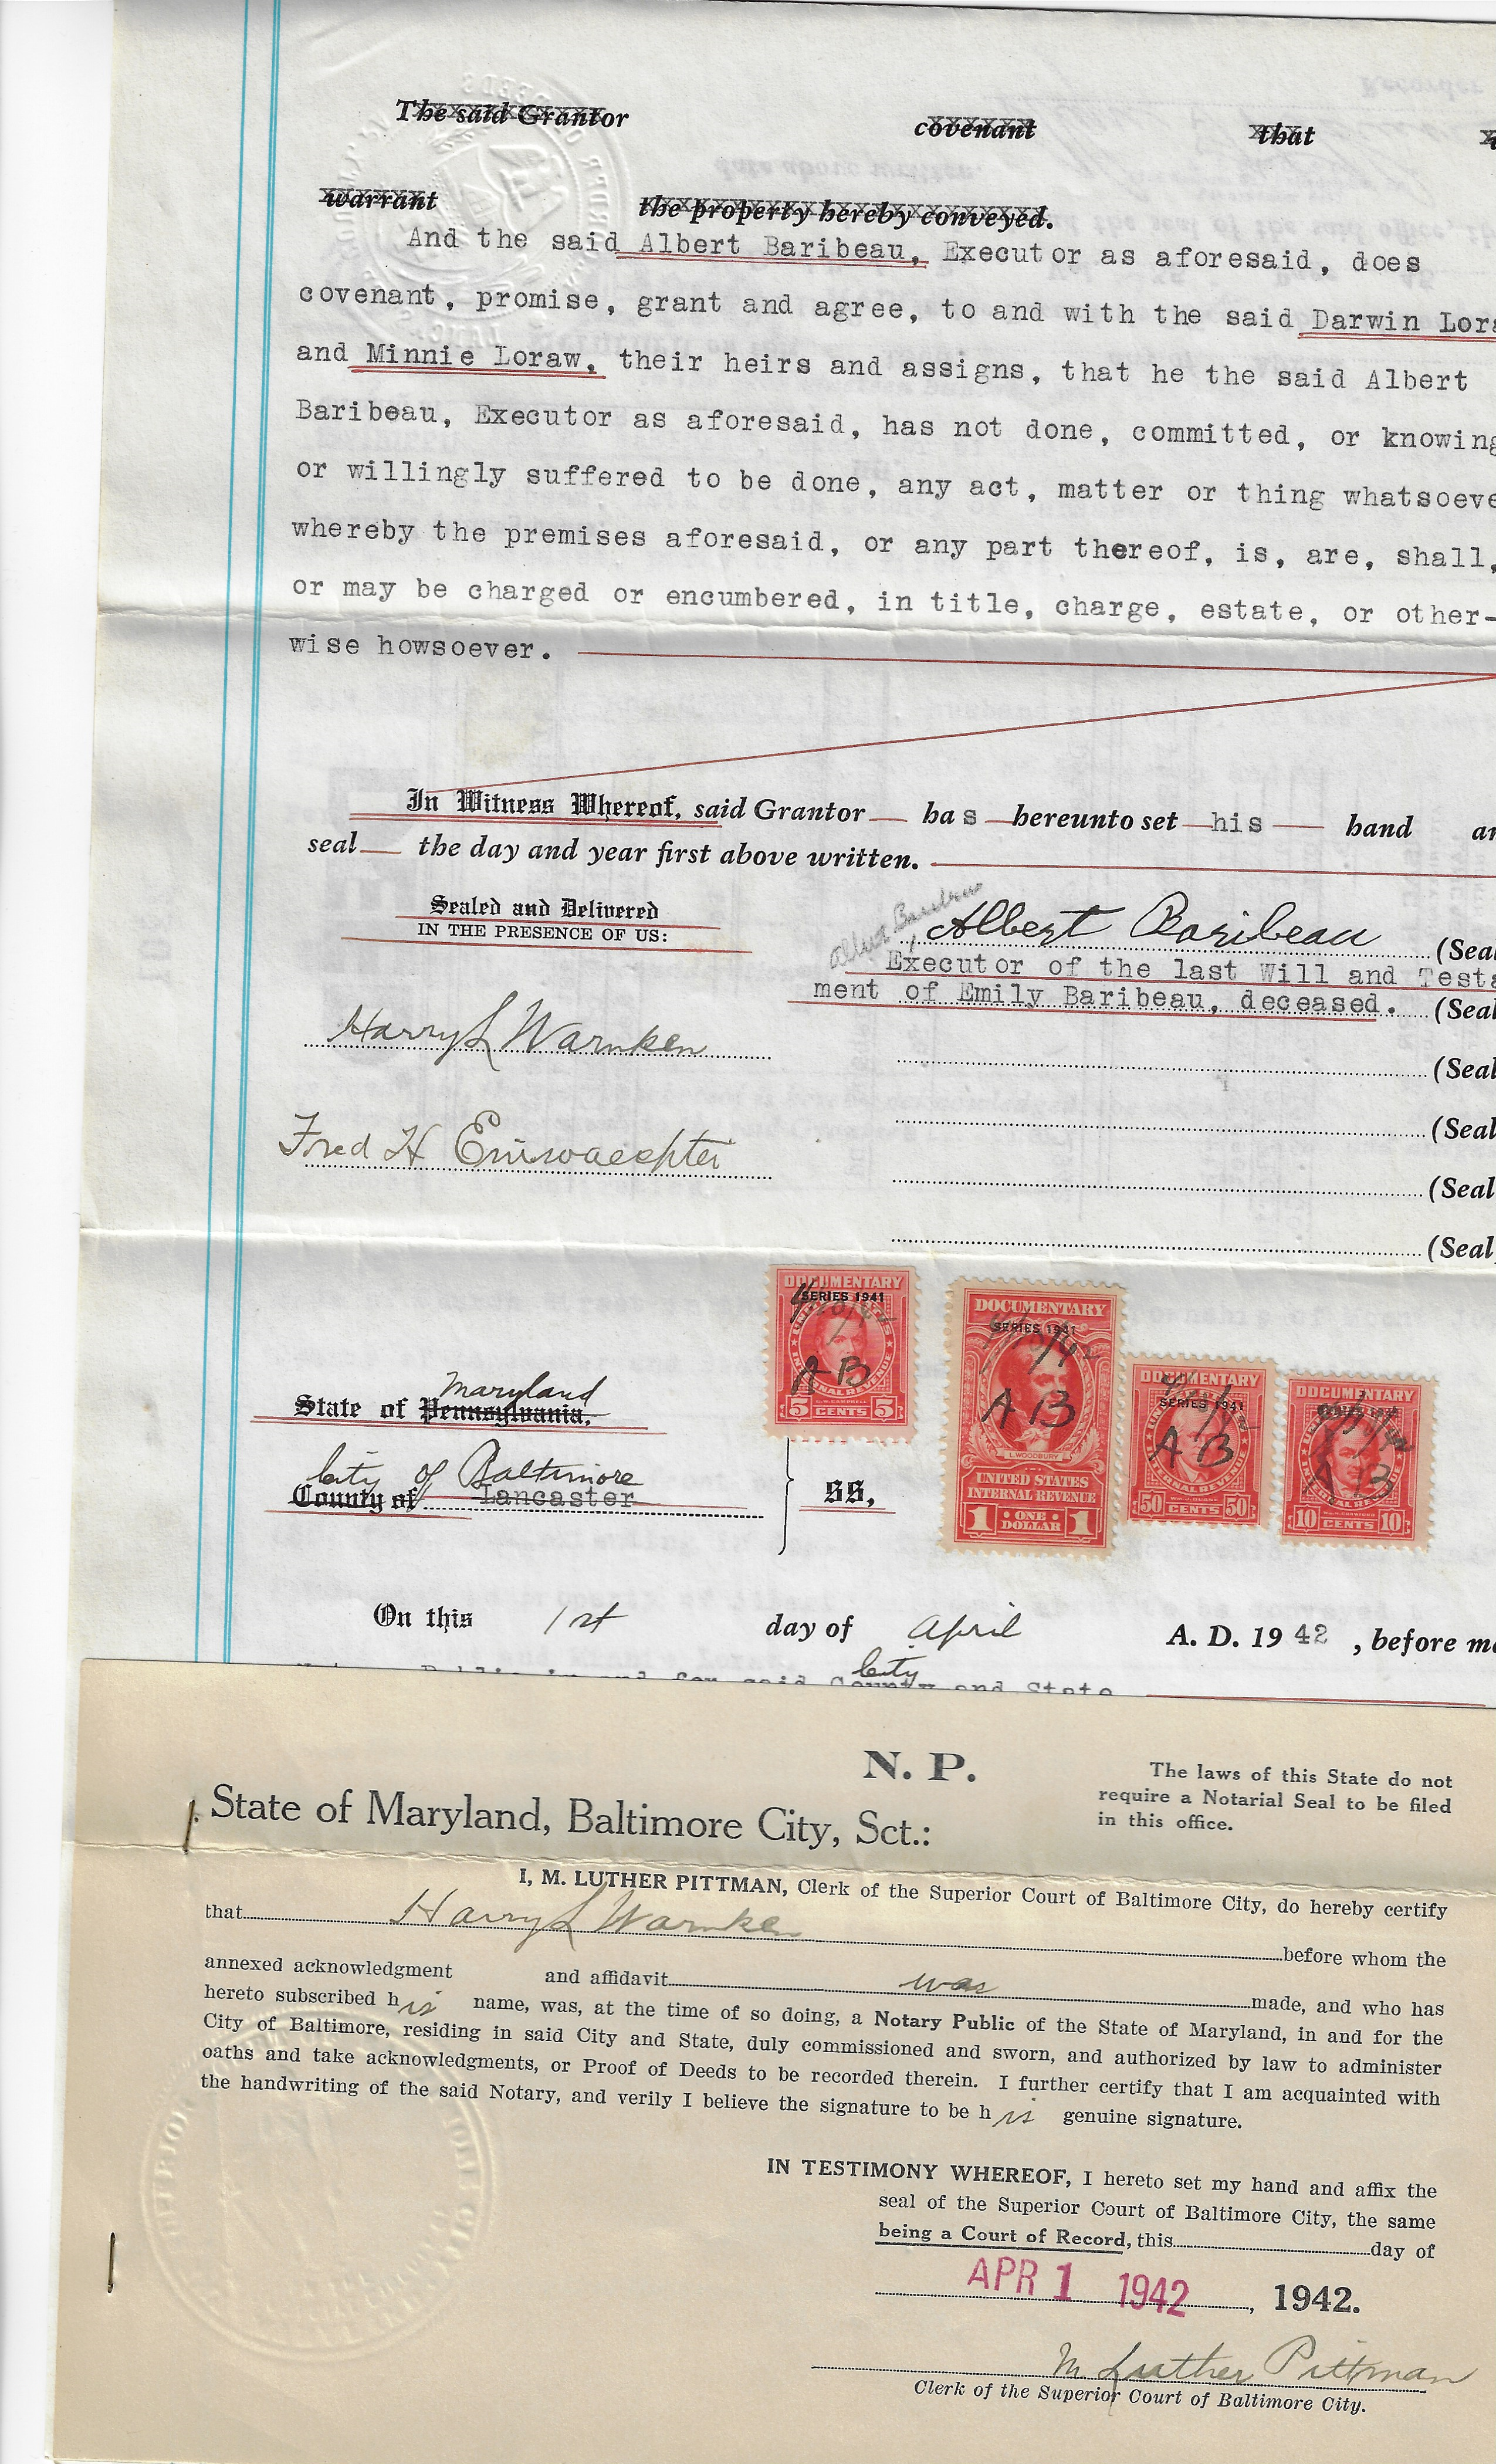 The said Grantor covenant that
warrant the property hereby conveyed.
And the said Albert Baribeau, Executor as aforesaid, does
covenant, promise, grant and agree, to and with the said Darwin Lora
and Minnie Loraw, their heirs and assigns, that he the said Albert
Baribeau, Executor as aforesaid, has not done, committed, or knowing
or willingly suffered to be done, any act, matter or thing whatsoeve
whereby the premises aforesaid, or any part thereof, is, are, shall,
or may be charged or encumbered, in title, charge, estate, or other-
wise howsoever.
In Witness Whereof, said Grantor has hereunto set his hand an
seal the day and year first above written.
Sealed and Delivered
IN THE PRESENCE OF US:
Albert Baribeau
Albert Baribeau (Seal
Executor of the last Will and Testa
ment of Emily Baribeau, deceased. (Seal
Harry L Warnken
(Seal
(Seal
Fred H
(Seal
(Seal
DOCUMENTARY
SERIES 1941
A B
INTERNAL REVENUE
5 CENTS 5
DOCUMENTARY
SERIES 1941
A B
L. WOODBURY
UNITED STATES
INTERNAL REVENUE
1 ONE DOLLAR 1
DOCUMENTARY
SERIES 1941
A B
50 CENTS 50
DOCUMENTARY
A B
10 CENTS 10
Maryland
State of Pennsylvania,
City of Baltimore
County of Lancaster
SS,
On this 1st day of April A. D. 1942, before me
City
Notary Public in and for said County and State
N. P.
The laws of this State do not
require a Notarial Seal to be filed
in this office.
State of Maryland, Baltimore City, Sct.:
I, M. LUTHER PITTMAN, Clerk of the Superior Court of Baltimore City, do hereby certify
that Harry L Warnken before whom the
annexed acknowledgment and affidavit was made, and who has
hereto subscribed his name, was, at the time of so doing, a Notary Public of the State of Maryland, in and for the
City of Baltimore, residing in said City and State, duly commissioned and sworn, and authorized by law to administer
oaths and take acknowledgments, or Proof of Deeds to be recorded therein. I further certify that I am acquainted with
the handwriting of the said Notary, and verily I believe the signature to be his genuine signature.
IN TESTIMONY WHEREOF, I hereto set my hand and affix the
seal of the Superior Court of Baltimore City, the same
being a Court of Record, this day of
APR 1 1942, 1942.
M Luther Pittman
Clerk of the Superior Court of Baltimore City.